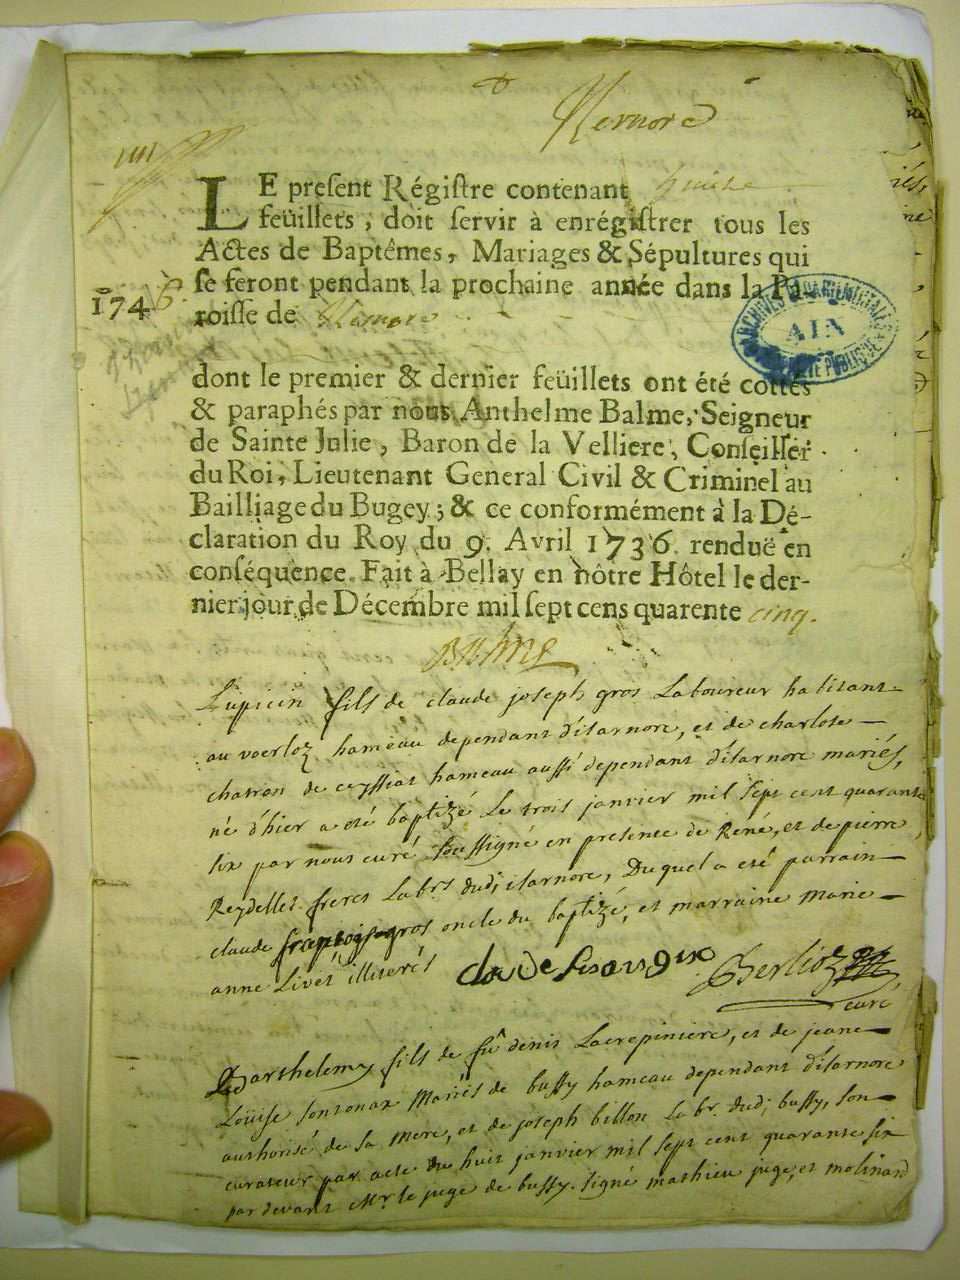 Izernore
LE preſent Régiſtre contenant
feüillets, doit ſervir à enrégiſtrer tous les
Actes de Baptêmes, Mariages & Sépultures qui
ſe feront pendant la prochaine année dans la Pa-
1746.
roiſſe de
ARCHIVES DEPARTEMENTALES
AIN
PUBLIQUE
dont le premier & dernier feüillets ont été cottés
& paraphés par nous Anthelme Balme, Seigneur
de Sainte Julie, Baron de la Velliere, Conſeiller
du Roi, Lieutenant General Civil & Criminel au
Bailliage du Bugey; & ce conformément à la Dé-
claration du Roy du 9. Avril 1736. renduë en
conſéquence. Fait à Bellay en nôtre Hôtel le der-
nier jour de Décembre mil ſept cens quarente cinq.
Balme
Lupicin fils de claude joseph gros Laboureur habitant
au voerloz hameau dependant d'isarnore, et de charlote
chatron de ceyssiat hameau aussi dependant d'isarnore mariés,
né d'hier a eté baptizé Le trois janvier mil sept cent quarante
six par nous curé soussigné en presence de René, et de pierre
Reydellet freres Labrs dudi isarnore, Duquel a eté parrain
claude gros oncle du baptizé, et marraine marie
anne Livet illiterés
Berlioz
curé
Barthelemy fils de fû denis Lacrepiniere, et de jeane
Loüise sontonax Mariés de bussy hameau dependant d'isarnore
authorisé de sa mere, et de joseph billon Labr. dudi bussy, son
curateur par acte du huit janvier mil sept cent quarante six
par devant Mr. le juge de bussy. signé mathieu juge, et molinard